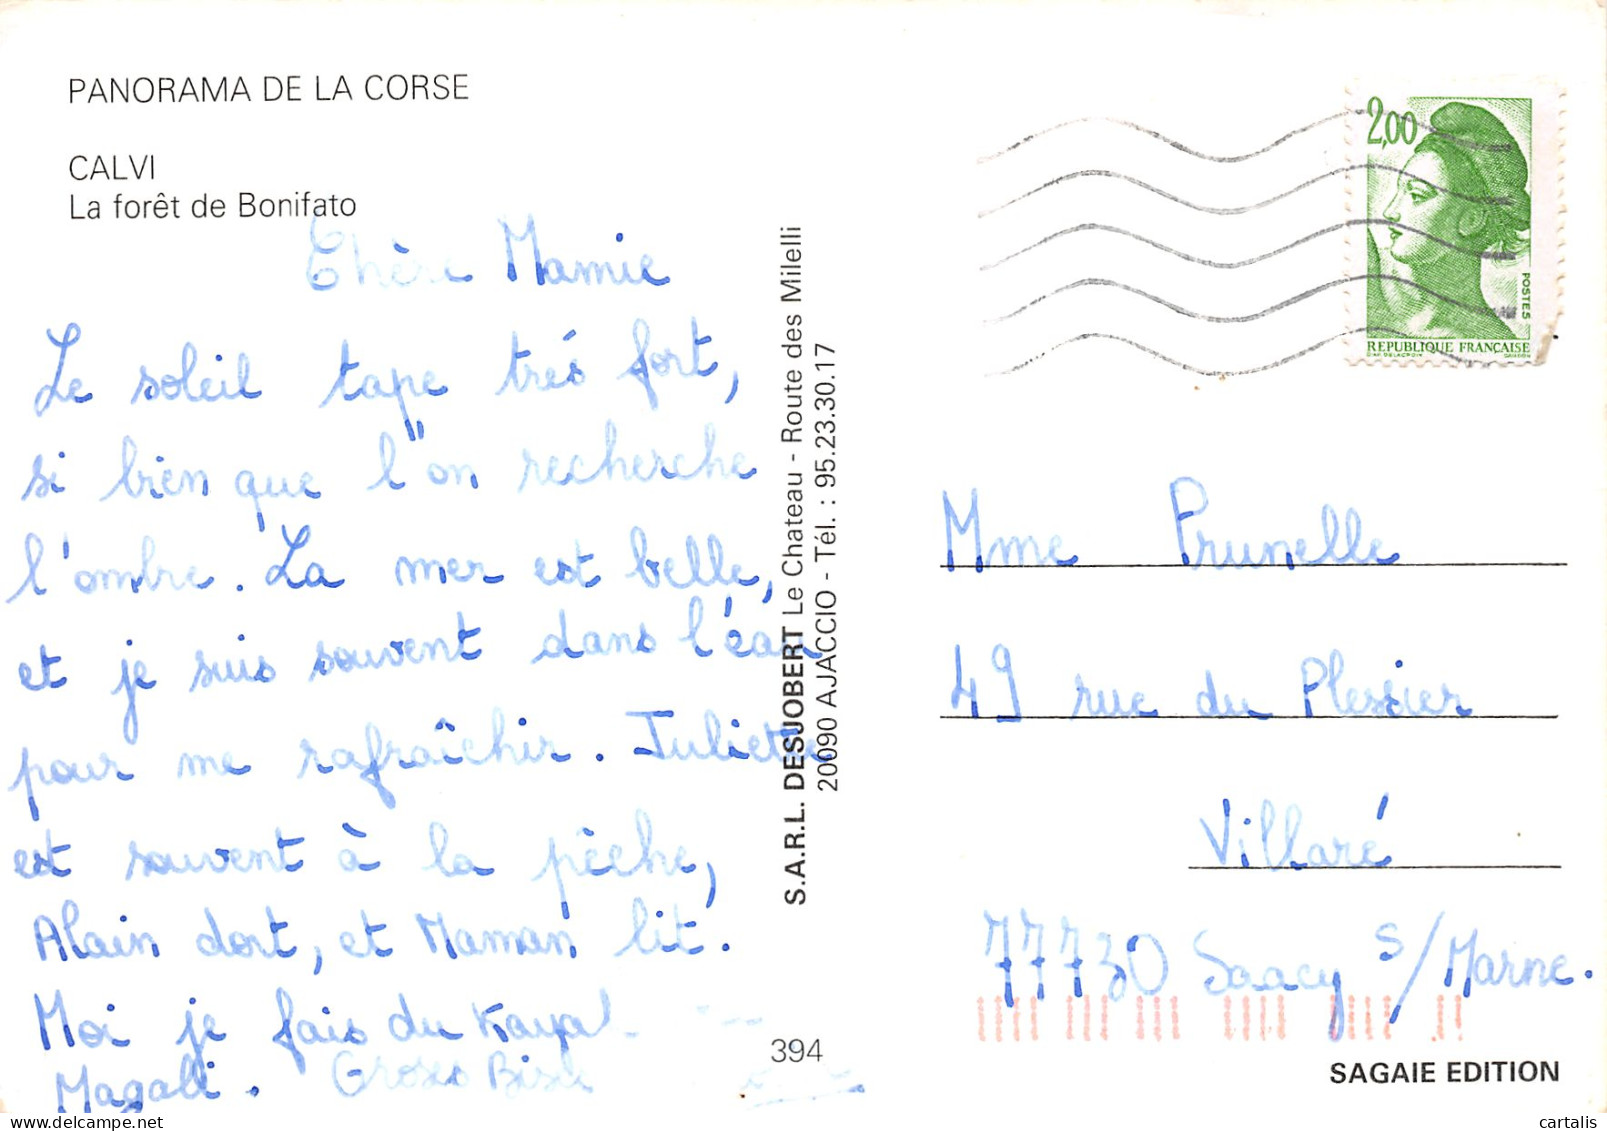 PANORAMA DE LA CORSE
CALVI
La forêt de Bonifato
Chère Mamie
Le soleil tape trés fort,
si bien que l'on recherche
l'ombre. La mer est belle,
et je suis souvent dans l'eau
pour me rafraîchir. Juliette
est souvent à la pêche,
Alain dort, et Maman lit.
Moi je fais du Kayak
Magali. Gross Bise
S.A.R.L. DESJOBERT Le Chateau - Route des Milelli
20090 AJACCIO - Tél. : 95.23.30.17
394
2,00
POSTES
REPUBLIQUE FRANÇAISE
D'AP. DELACROIX GANDON
Mme Prunelle
49 rue du Plessier
Villaré
77730 Saacy s/Marne.
SAGAIE EDITION
cartalis